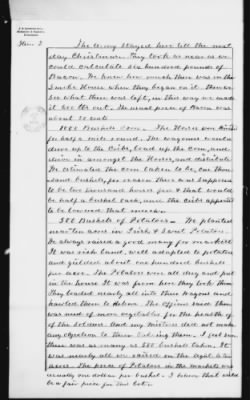 Item 2
The Army stayed here till the next
day Christmas. They took as near as we
could calculate six hundred pounds of
Bacon. We knew how much there was in the
Smoke House when they began on it. Then we
saw what there was left, in this way we made
it 600 lbs. The usual price of Bacon was
about 20 cents.
1000 Bushels Corn. The Horses were
for half a mile round. The wagons would
drive up to the Cribs, load up the Corn, and
drive in amongst the Horses, and distribute
We estimated the corn taken to be one thou-
sand bushels, for reason there was supposed
to be two thousand horses fed & that would
be half a bushel each, and the cribs appeared
to be lowered that much.
388 Bushels of Potatoes. We planted
acres in Irish & Sweet Potatoes.
We always raised a good many for market
It was rich land, well adapted to potatoes
and yielded about one hundred bushels
per acre. The Potatoes were all dug and put
in the house. It was from here they took them
They loaded nearly all into their wagons and
hauled them to Helena. The officers said there
was need of more vegetables for the health of
of the soldiers. And my mistress did not make
any objection to their taking them. I put down
there was as many as 388 bushels taken. It
was nearly all we raised on the
acres. The price of Potatoes in the markets was
usually one dollar per bushel. I know that would
be a fair price for the lot.